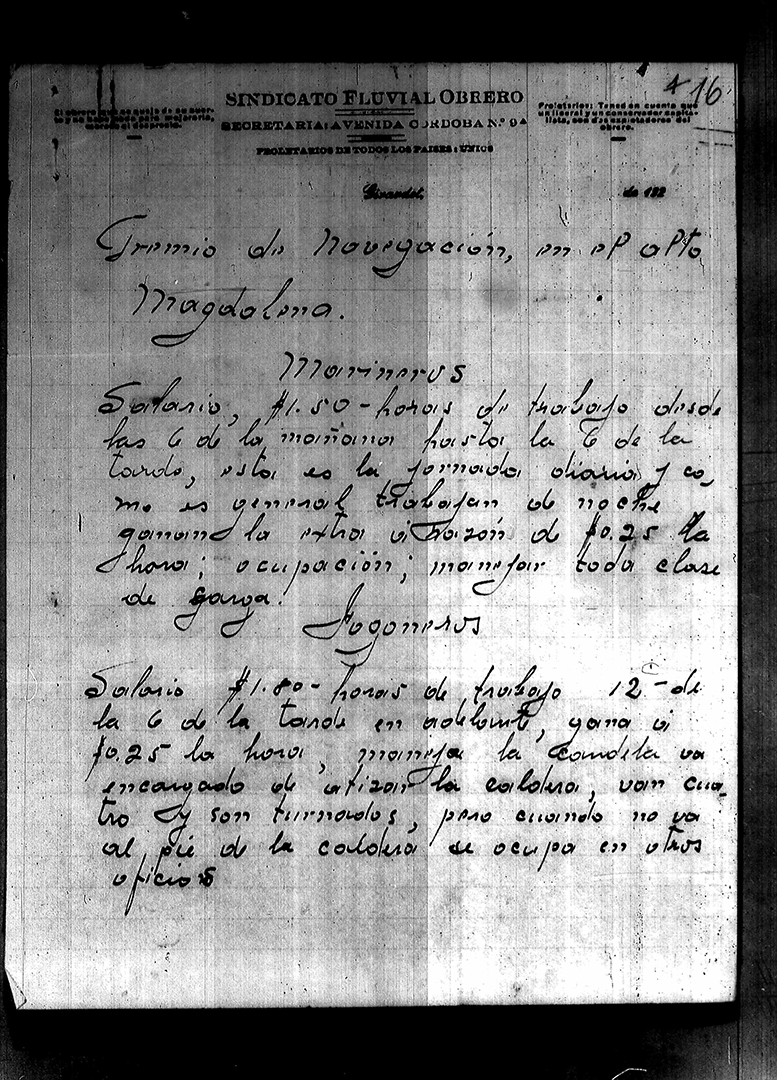 4 16
SINDICATO FLUVIAL OBRERO
SECRETARIA: AVENIDA CORDOBA N.º 9A
PROLETARIOS DE TODOS LOS PAISES: UNIOS
El obrero que se queja de su suer-
te y no hace nada para mejorarla,
merece el desprecio.
Proletarios: Tened en cuenta que
un liberal y un conservador capita-
lista, son dos explotadores del
obrero.
Girardot, de 192
Gremio de Navegación, en el alto
Magdalena.
Marineros
Salario, $1.50 - horas de trabajo desde
las 6 de la mañana hasta la 6 de la
tarde, esta es la jornada diaria y co-
mo es general trabajan de noche
ganan la extra á razón de $0.25 la
hora; ocupación; manejar toda clase
de carga.
Fogoneros
Salario $1.80 - horas de trabajo 12 - de
la 6 de la tarde en adelant, gana á
$0.25 la hora, maneja la candela va
encargado de atizar la caldera, van cua-
tro y son turnados, pero cuando no va
al pié de la caldera se ocupa en otros
oficios